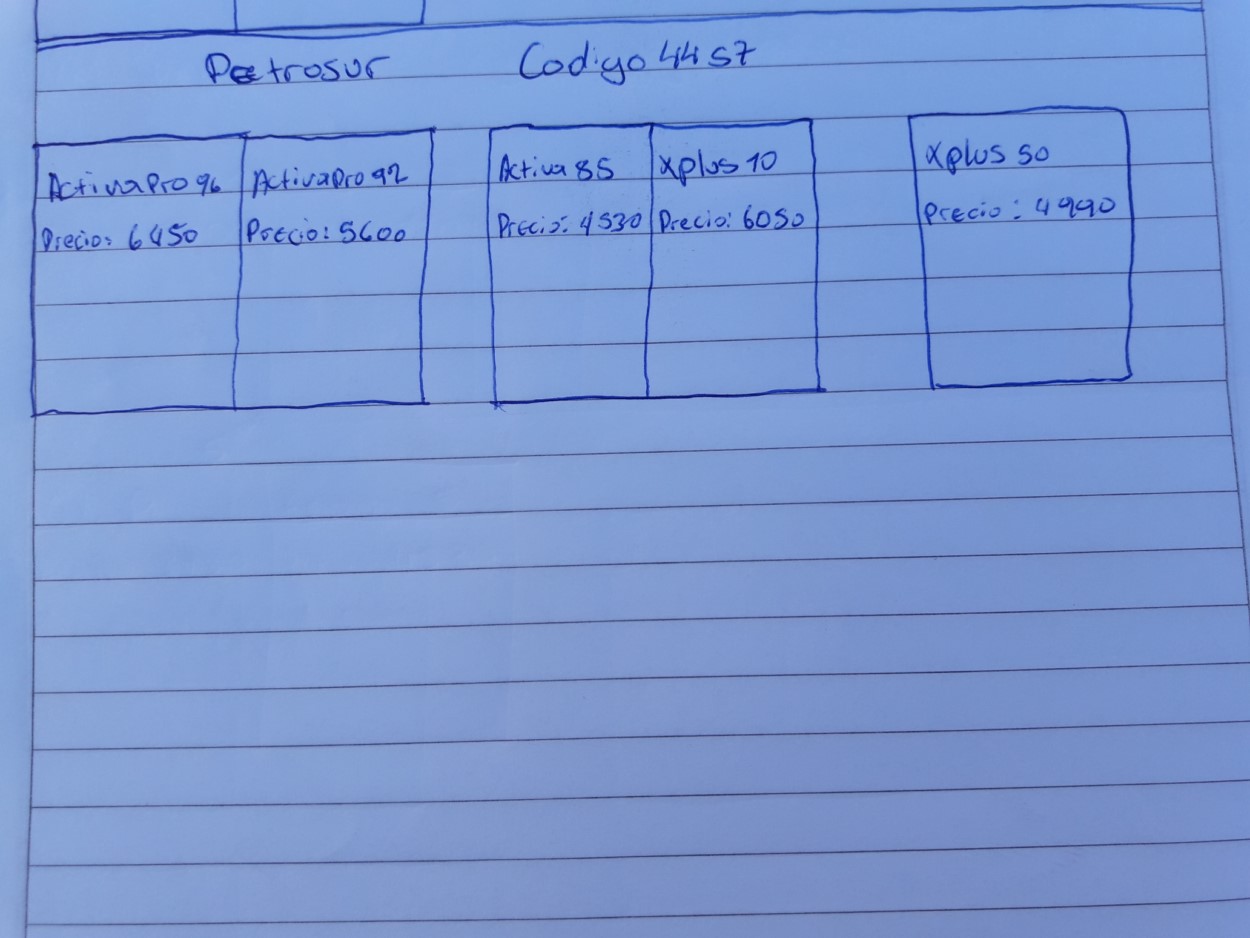 Petrosur Codigo 4457
ActivaPro 96 ActivaPro 92 Activa 85 Xplus 10 Xplus 50
Precio: 6450 Precio: 5600 Precio: 4530 Precio: 6050 Precio: 4990